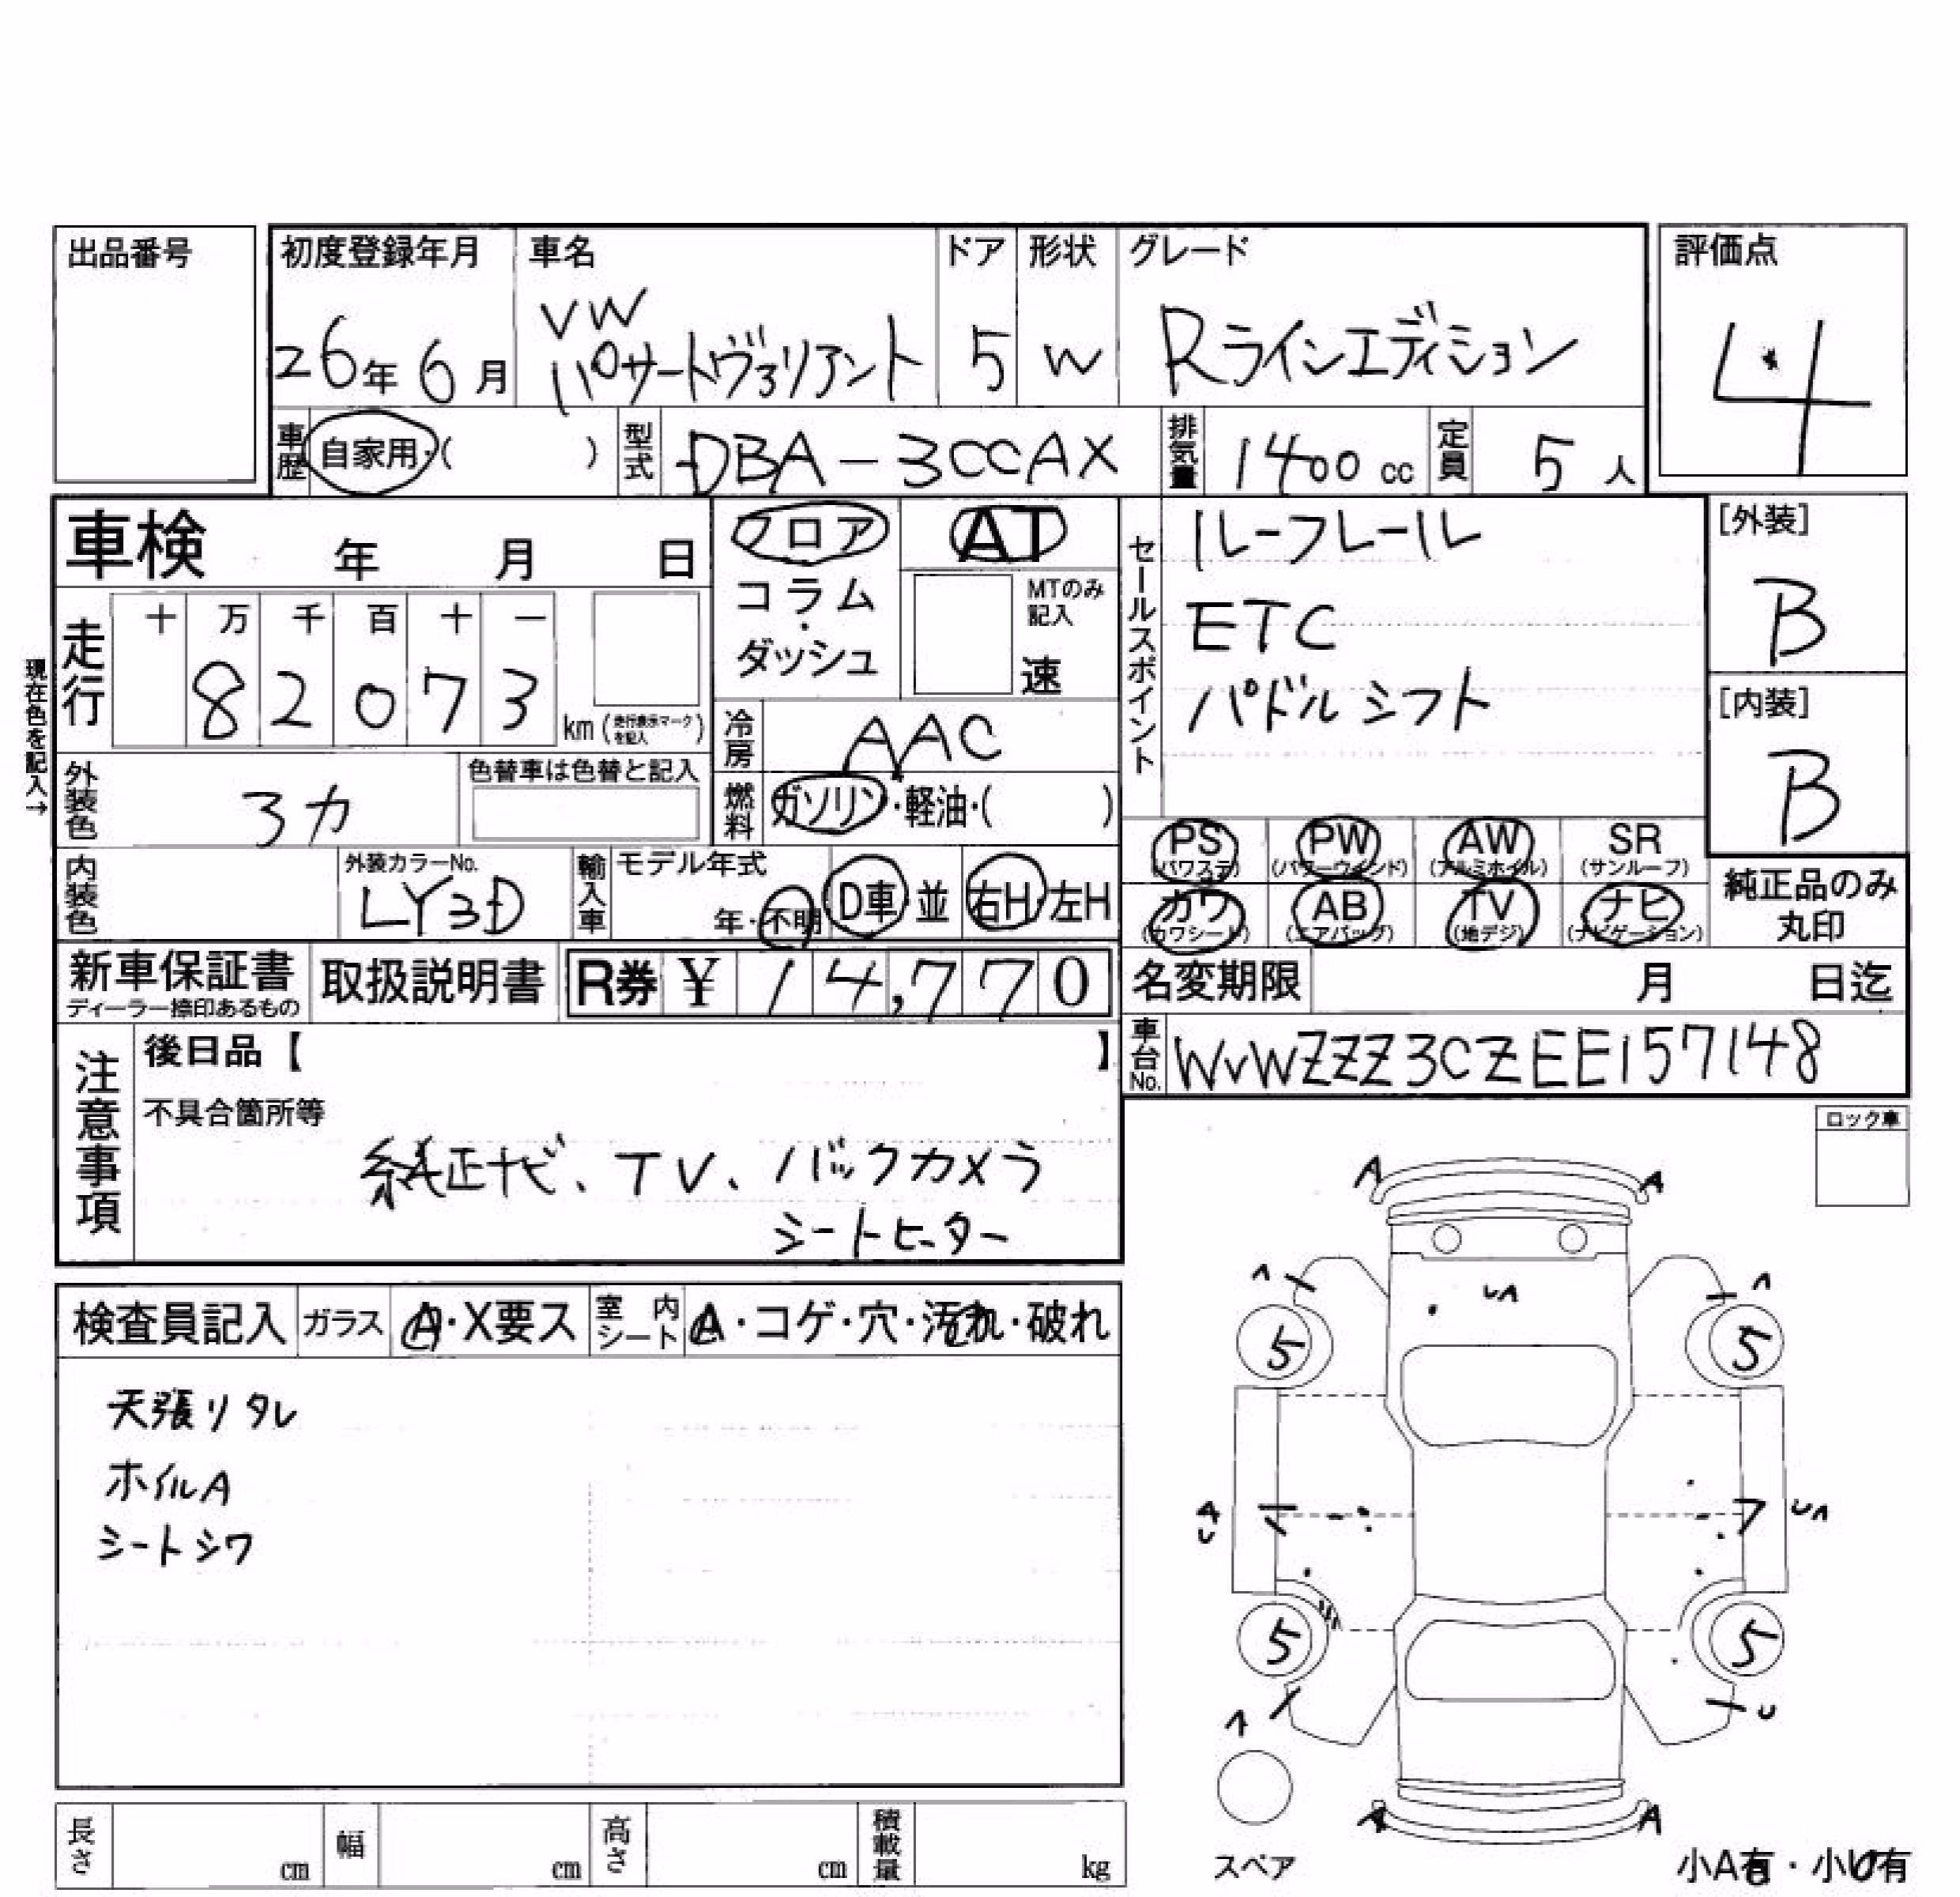 出品番号
初度登録年月 車名 ドア 形状 グレード 評価点
26年6月 VW パサートヴァリアント 5 W Rラインエディション 4
車歴 自家用・( ) 型式 DBA-3CCAX 排気量 1400cc 定員 5人
車検 年 月 日
フロア AT
コラム・ダッシュ
MTのみ記入
速
セールスポイント
ルーフレール
ETC
パドルシフト
[外装]
B
[内装]
B
走行 十 万 千 百 十 一
82073 km (走行表示マークを記入)
現在色を記入→
冷房 AAC
燃料 ガソリン・軽油・( )
外装色 色替車は色替と記入
内装色 外装カラーNo. LY3D
輸入車 モデル年式 年・不明 D車・並 右H・左H
PS (パワステ) PW (パワーウインド) AW (アルミホイル) SR (サンルーフ)
カワ (カワシート) AB (エアバッグ) TV (地デジ) ナビ (ナビゲーション)
純正品のみ丸印
新車保証書 ディーラー捺印あるもの
取扱説明書
R券 ¥14,770
名変期限 月 日迄
車台No. WVWZZZ3CZEE157148
注意事項
後日品【 】
不具合箇所等
純正ナビ、TV、バックカメラ
シートヒーター
ロック車
検査員記入 ガラス A・X要ス 室内シート A・コゲ・穴・汚れ・破れ
天張りタレ
ホイルA
シートシワ
A A
UA
5 5
UA
5 5
U
A A
スペア
小A有・小U有
長さ cm 幅 cm 高さ cm 積載量 kg